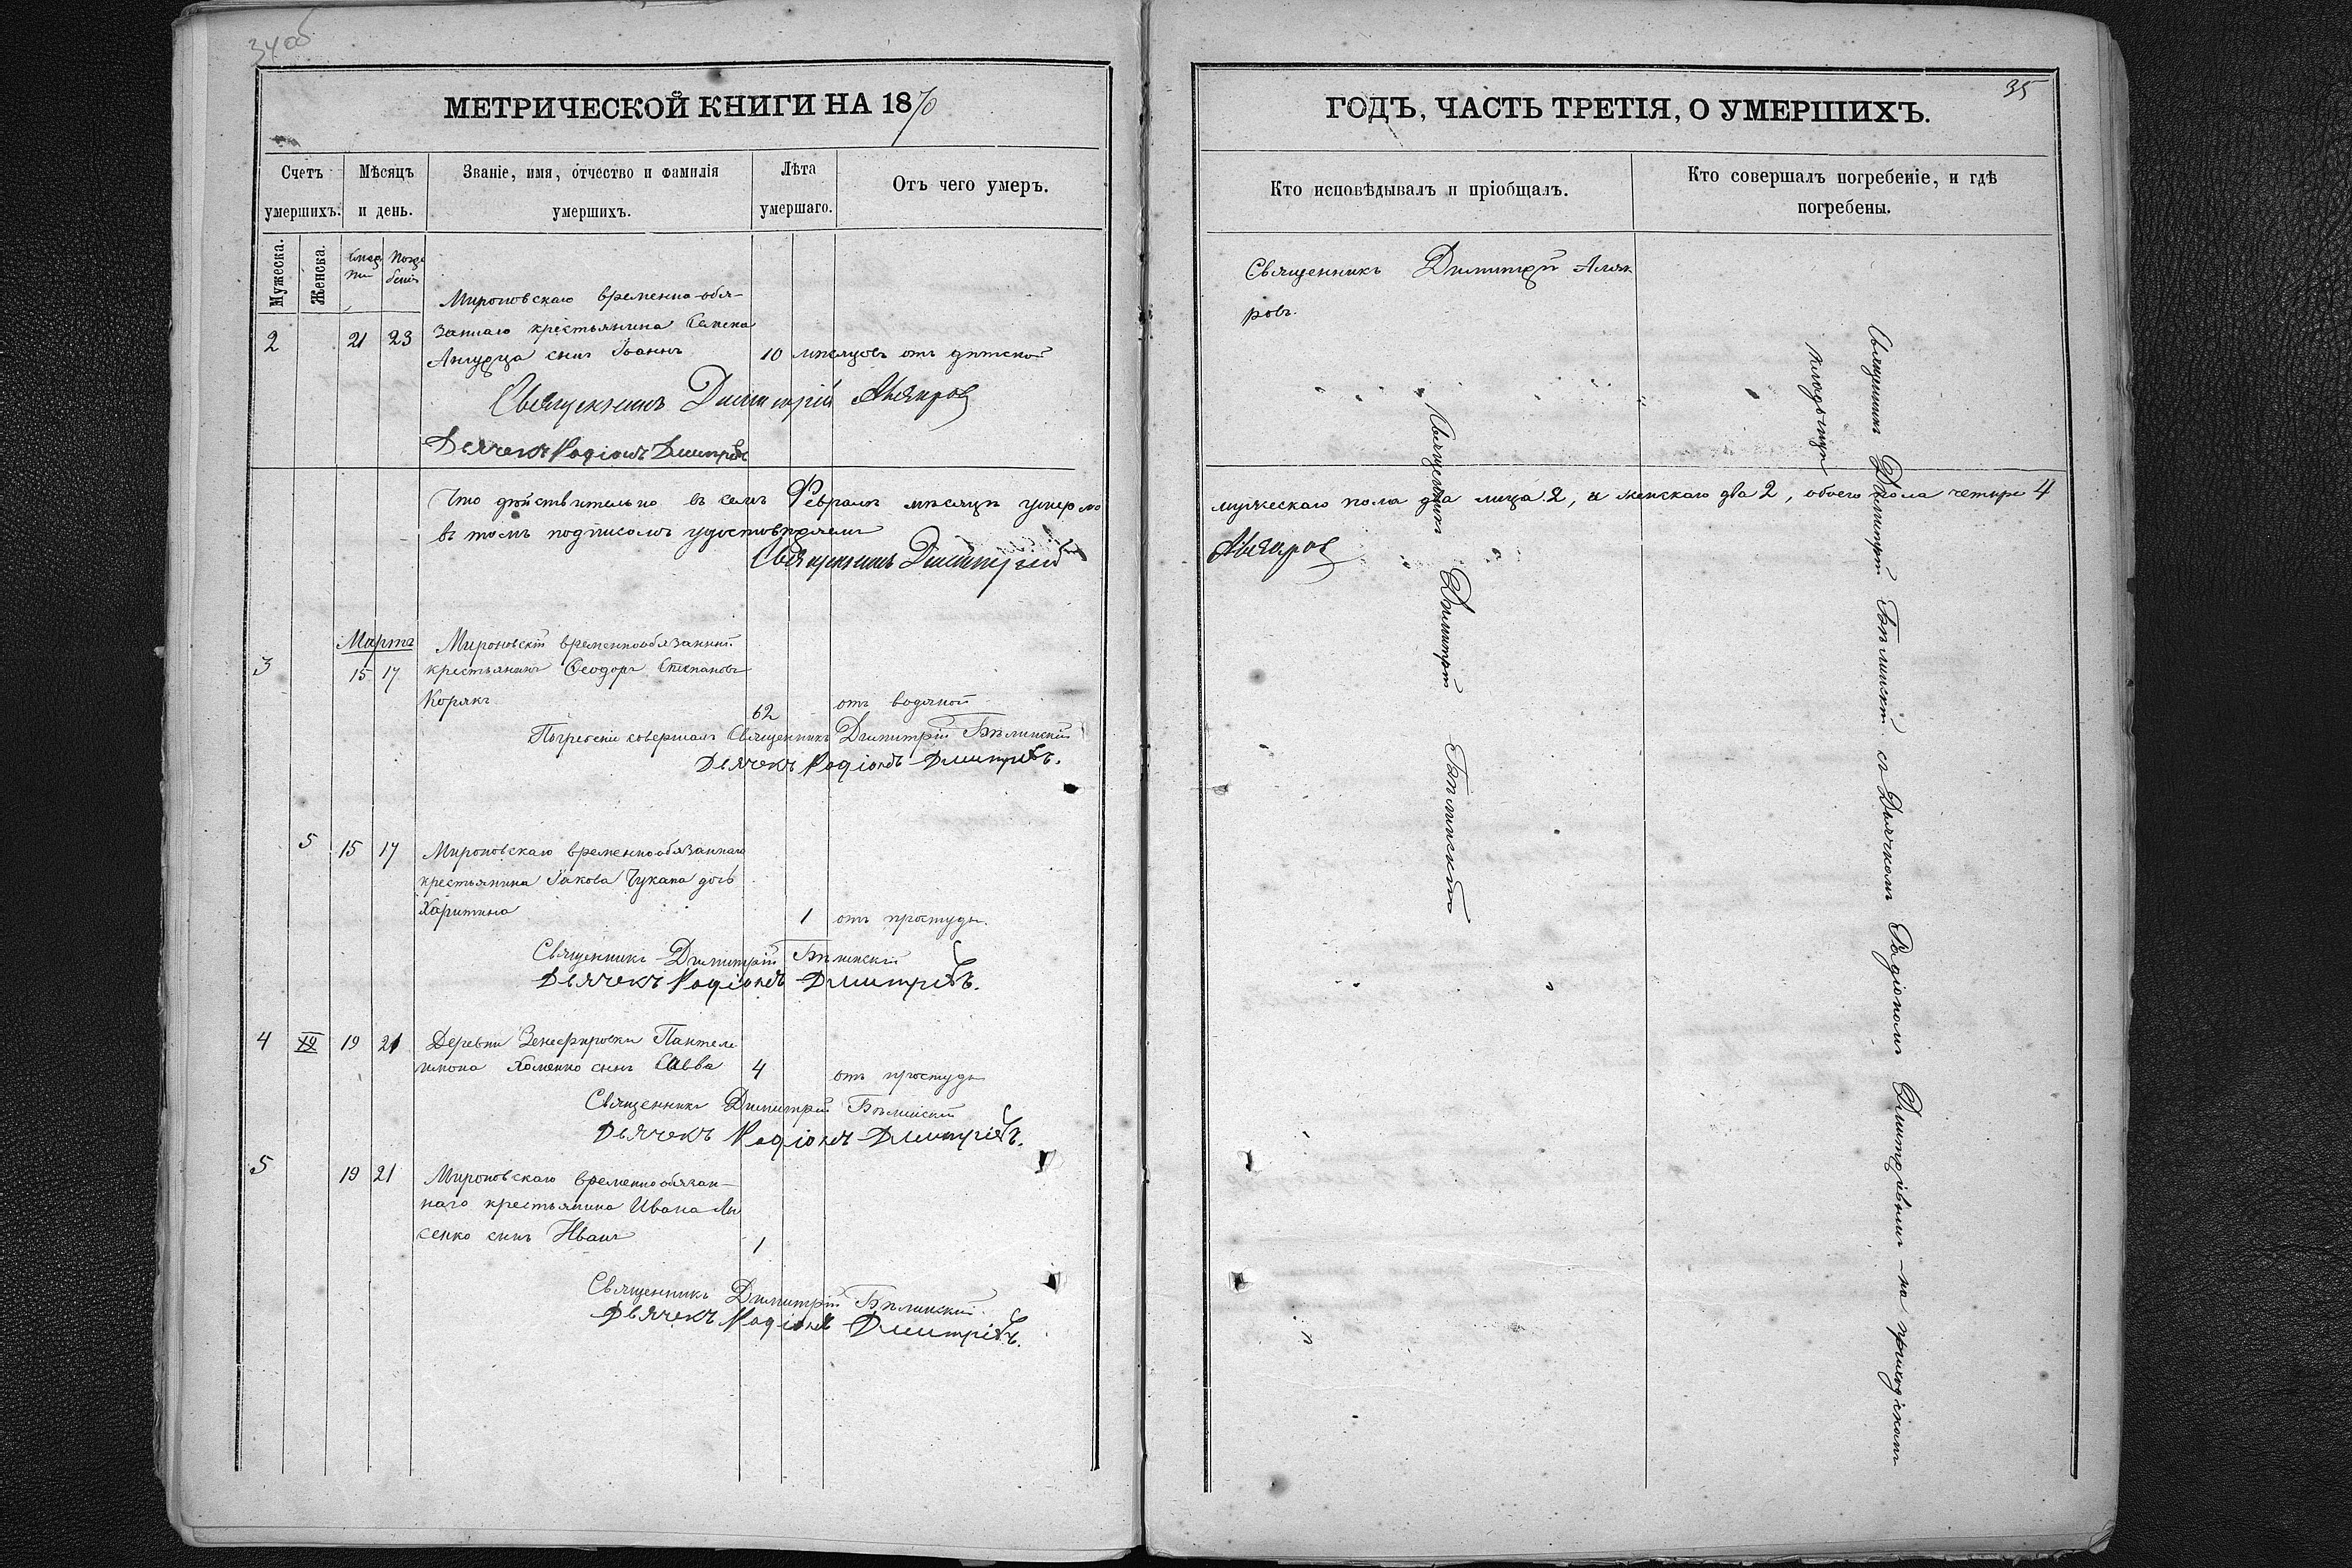 34 об
МЕТРИЧЕСКОЙ КНИГИ НА 1870
Счетъ умершихъ.
Мужеска.
Женска.
Мѣсяцъ и день.
Званіе, имя, отчество и фамилія умершихъ.
Лѣта умершаго.
Отъ чего умеръ.
2 21 23
Мироновскаго временно-обя-
заннаго крестьянина
сынъ Іоаннъ 10 мѣсяцовъ отъ дѣтской
Священникъ Димитрій
Дьячекъ Родіонъ Дмитріевъ
Что дѣйствительно въ семъ Февралѣ мѣсяцѣ умерло
въ томъ подписомъ удостовѣряемъ
Священникъ Димитрій
Мартъ
3 15 17
Мироновскій временнообязанный
крестьянинъ Ѳеодоръ Степановъ
Корякъ 62 отъ водяной
Погребеніе совершалъ Священникъ Димитрій Бѣлинскій
Дьячекъ Родіонъ Дмитріевъ.
5 15 17
Мироновскаго временнообязаннаго
крестьянина Іакова Чукана дочь
Харитина 1 отъ простуды.
Священникъ Димитрій Бѣлинскій
Дьячекъ Родіонъ Дмитріевъ.
4 19 21
Деревни Пантеле
имона Хоменко сынъ Савва 4 отъ простуды
Священникъ Димитрій Бѣлинскій
Дьячекъ Родіонъ Дмитріевъ.
5 19 21
Мироновскаго временнообязан-
наго крестьянина Ивана Лы
сенко сынъ Иванъ 1
Священникъ Димитрій Бѣлинскій.
Дьячекъ Родіонъ Дмитріевъ.
35
ГОДЪ, ЧАСТЬ ТРЕТІЯ, О УМЕРШИХЪ.
Кто исповѣдывалъ и пріобщалъ.
Кто совершалъ погребеніе, и гдѣ погребены.
Священникъ Димитрій
ровъ.
мужескаго пола два лица 2, и женскаго два 2, обоего пола четыре 4
Священникъ Димитрій Бѣлинскій
Священникъ Димитрій Бѣлинскій съ Дьячкомъ Родіономъ Дмитріевымъ на приходскомъ
кладбищѣ